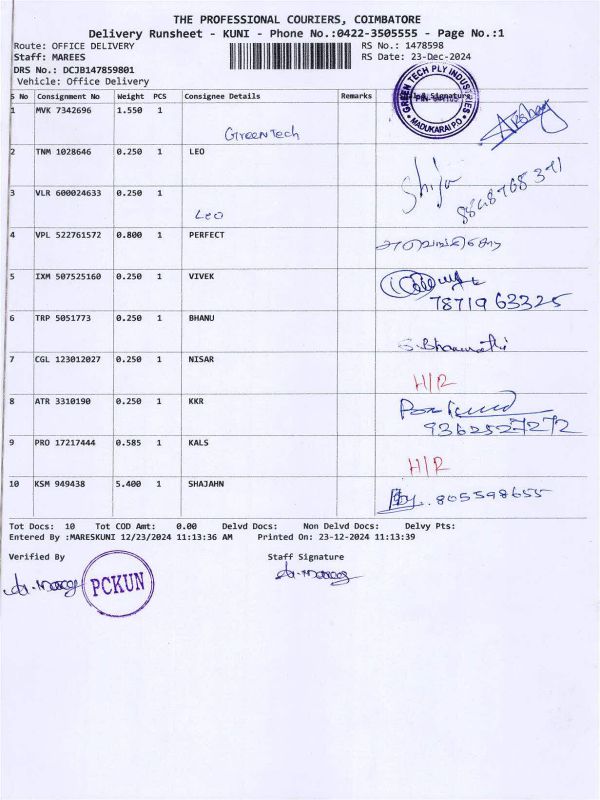 THE PROFESSIONAL COURIERS, COIMBATORE
Delivery Runsheet - KUNI - Phone No.:0422-3505555 - Page No.:1
Route: OFFICE DELIVERY RS No.: 1478598
Staff: MAREES RS Date: 23-Dec-2024
DRS No.: DCJB147859801
Vehicle: Office Delivery
S No Consignment No Weight PCS Consignee Details Remarks Signature
GREEN TECH PLY INDUSTRIES MADUKARAI.P.O
1 MVK 7342696 1.550 1
GreenTech
2 TNM 1028646 0.250 1 LEO
3 VLR 600024633 0.250 1
Leo
4 VPL 522761572 0.800 1 PERFECT
5 IXM 507525160 0.250 1 VIVEK
7871963325
6 TRP 5051773 0.250 1 BHANU
7 CGL 123012027 0.250 1 NISAR
H/R
8 ATR 3310190 0.250 1 KKR
9362527272
9 PRO 17217444 0.585 1 KALS
H/R
10 KSM 949438 5.400 1 SHAJAHN
805598655
Tot Docs: 10 Tot COD Amt: 0.00 Delvd Docs: Non Delvd Docs: Delvy Pts:
Entered By :MARESKUNI 12/23/2024 11:13:36 AM Printed On: 23-12-2024 11:13:39
Verified By Staff Signature
PCKUN